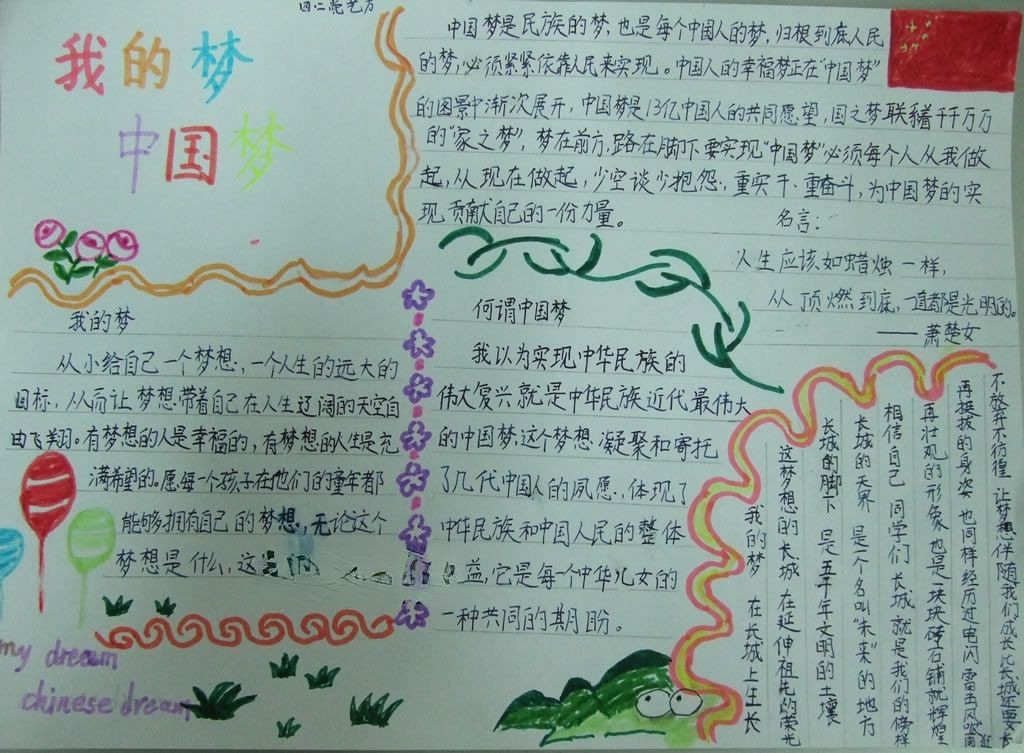 四二亮艺方
我的梦
中国梦
中国梦是民族的梦,也是每个中国人的梦,归根到底人民
的梦,必须紧紧依靠人民来实现。中国人的幸福梦正在“中国梦”
的图景中渐次展开,中国梦是13亿中国人的共同愿望,国之梦联系着千千万万
的“家之梦”,梦在前方,路在脚下,要实现“中国梦”必须每个人从我做
起,从现在做起,少空谈少抱怨,重实干、重奋斗,为中国梦的实
现贡献自己的一份力量。
名言:
人生应该如蜡烛一样,
从顶燃到底,一直都是光明的。
——萧楚女
我的梦
从小给自己一个梦想,一个人生的远大的
目标,从而让梦想带着自己在人生辽阔的天空自
由飞翔。有梦想的人是幸福的,有梦想的人生是充
满希望的。愿每一个孩子在他们的童年都
能够拥有自己的梦想,无论这个
梦想是什么,这
何谓中国梦
我以为实现中华民族的
伟大复兴就是中华民族近代最伟大
的中国梦,这个梦想凝聚和寄托
了几代中国人的夙愿,体现了
中华民族和中国人民的整体
益,它是每个中华儿女的
一种共同的期盼。
不放弃不彷徨 让梦想伴随我们成长 比长城还要长
再挺拔的身姿 也同样经历过电闪雷击风吹雨
再壮观的形象 也是块块砖石铺就辉煌
相信自己 同学们 长城就是我们的榜样
长城的天界 是一个名叫“未来”的地方
长城的脚下 是五千年文明的土壤
这梦想的长城 在延伸祖先的荣光
我的梦 在长城上生长
my dream
chinese dream